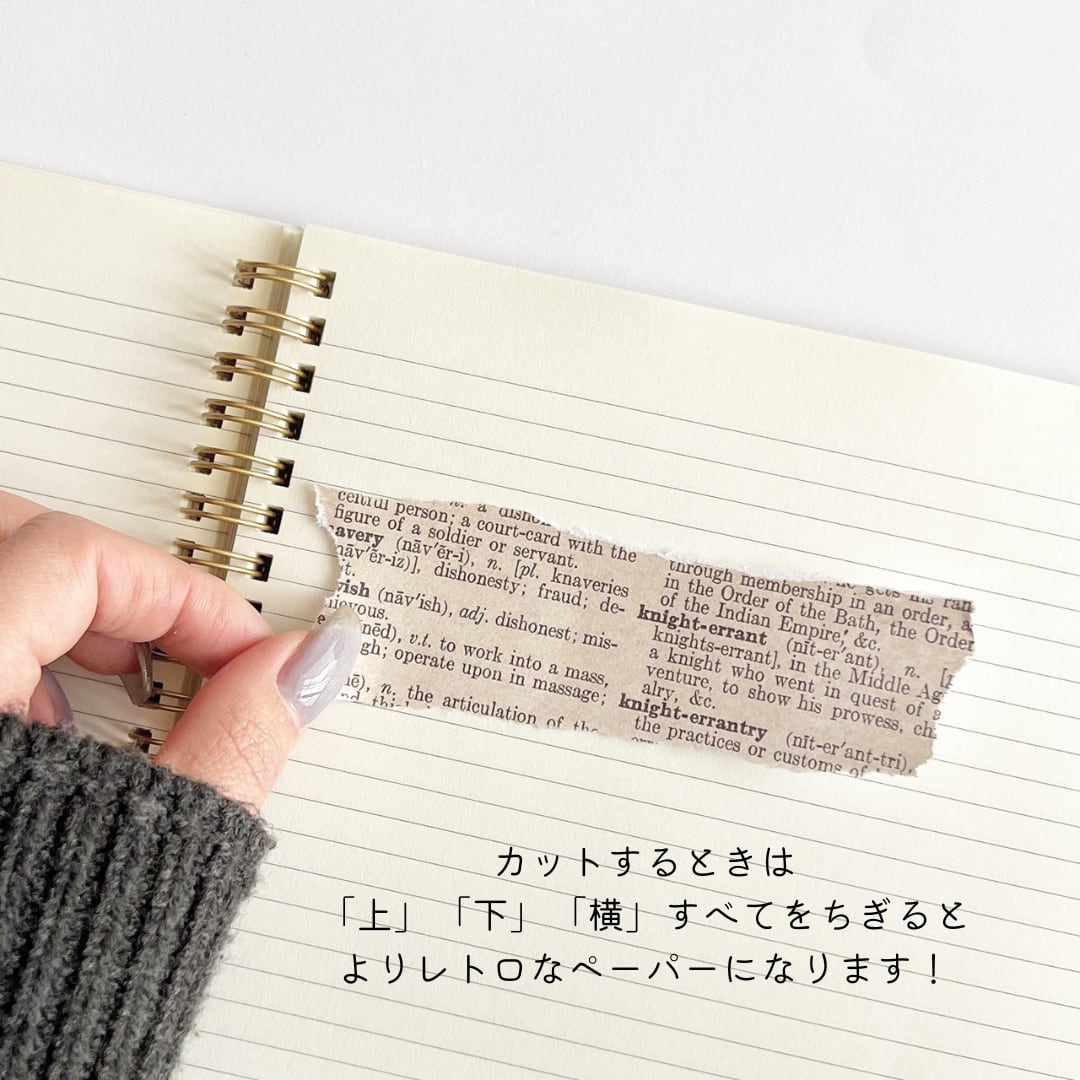 n. a dishon
centul person; a court-card with the
figure of a soldier or servant.
avery (nāv′ẽr-i), n. [pl. knaveries
nāv′ẽr-iz)], dishonesty; fraud; de-
it.
vish (nāv′ish), adj. dishonest; mis-
ievous.
nēd), v.t. to work into a mass,
gh; operate upon in massage;
nē), n. the articulation of the
through membership in an order, a
in the Order of the Bath, the Order
of the Indian Empire, &c.
knight-errant (nīt-er′ant), n.
knights-errant], in the Middle Ag
a knight who went in quest of a
venture, to show his prowess, ch
alry, &c.
knight-errantry (nīt-er′ant-tri),
the practices or customs of
カットするときは
「上」「下」「横」すべてをちぎると
よりレトロなペーパーになります！